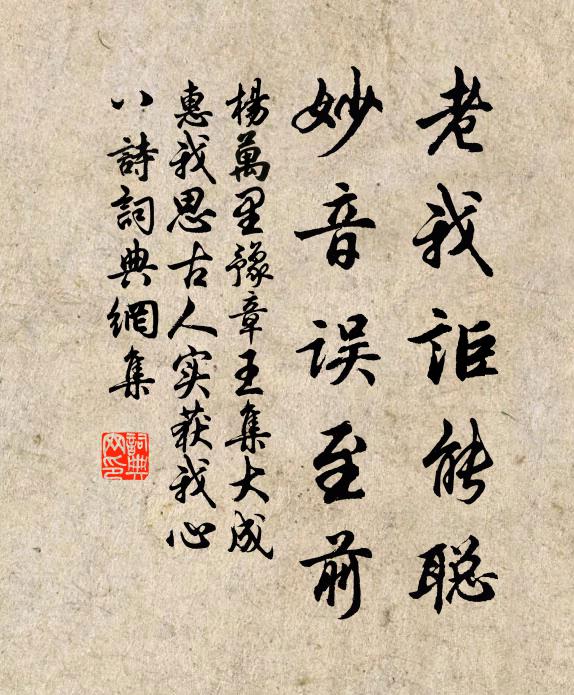 老我詎能聪
妙音误至前
楊萬里豫章王集大成
惠我思古人实获我心
八詩詞典網集
詞典网印